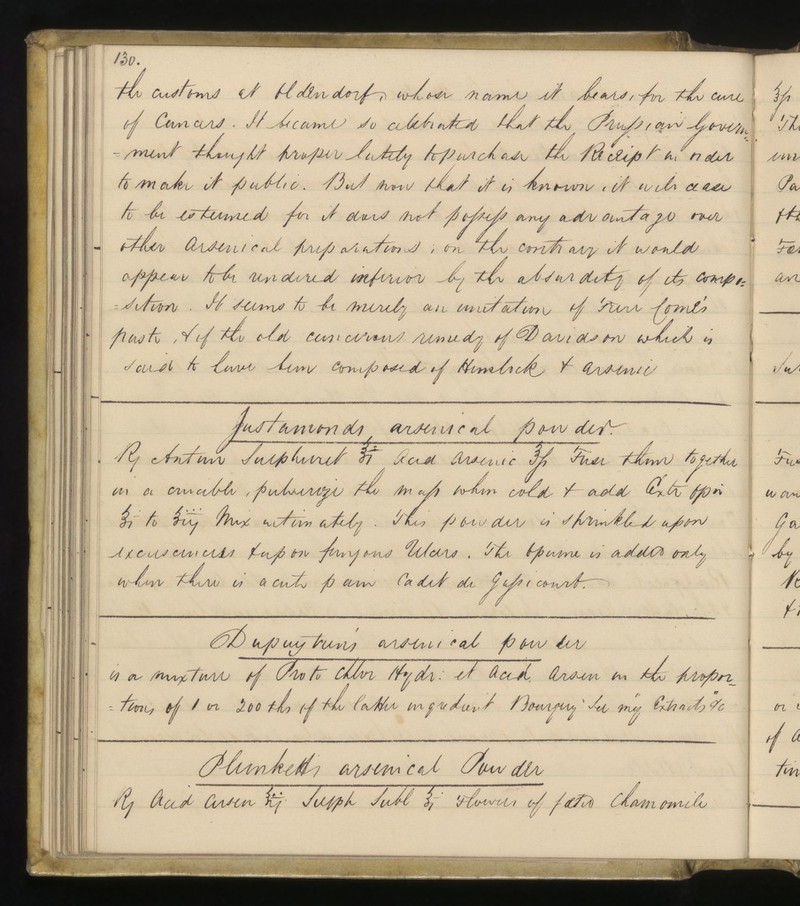 130.
the customs at Oldendorf, whose name it bears, for the cure
of Cancers. It became so celebrated that the Prussian Govern-
=ment thought proper lately to purchase the Receipt in order
to make it public. But now that it is known, it will cease
to be esteemed for it does not possess any advantage over
other arsenical preparations, on the contrary it would
appear to be rendered inferior by the absurdity of its compo=
=sition. It seems to be merely an imitation of Frere Come's
paste, & of the old cancerous remedy of Davidson which is
said to have been composed of Hemlock & arsenic
Justamonds arsenical powder.
R Antim Sulphuret ℥i Acid Arsenic ℥ſs Fuse them together
in a crucible, pulverize the mass when cold & add Extr Opii
to Mix intimately. This powder is sprinkled upon
excrescences & upon fungous Ulcers. The Opium is added only
when there is acute pain Cadet de Gassicourt.
Dupuytren's arsenical powder
is a mixture of Proto Chlor Hydr: et Acid Arsen in the propor-
=tions of 1 or 200ths of the latter ingredient Bourgery See my Extracts &c
Plunketts arsenical Powder
R Acid Arsen Sulph Subl ℥i Flowers of foetid Chamomile